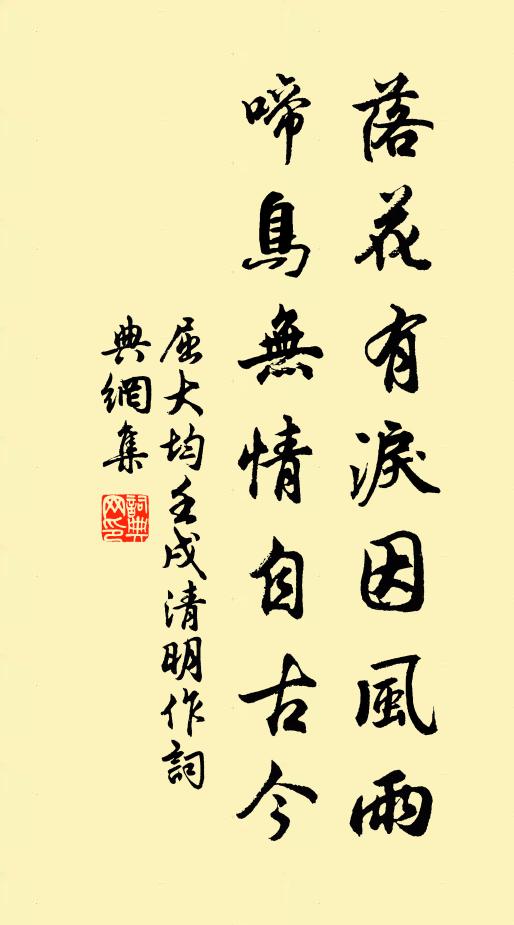 落花有淚因風雨
啼鳥無情自古今
屈大均壬戌清明作詞
典網集
詞典
网印